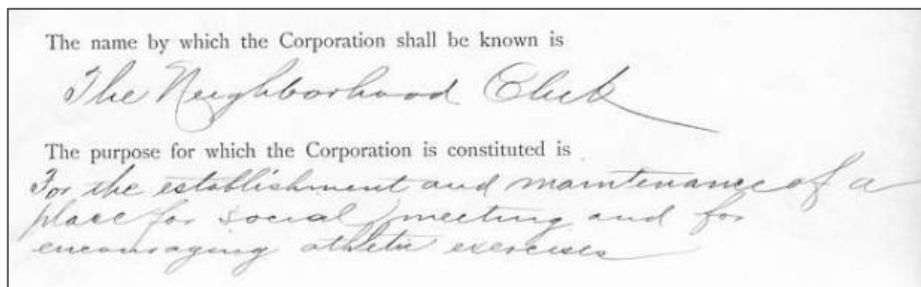 The name by which the Corporation shall be known is
The Neighborhood Club
The purpose for which the Corporation is constituted is
For the establishment and maintenance of a
place for social meeting and for
encouraging athletic exercises